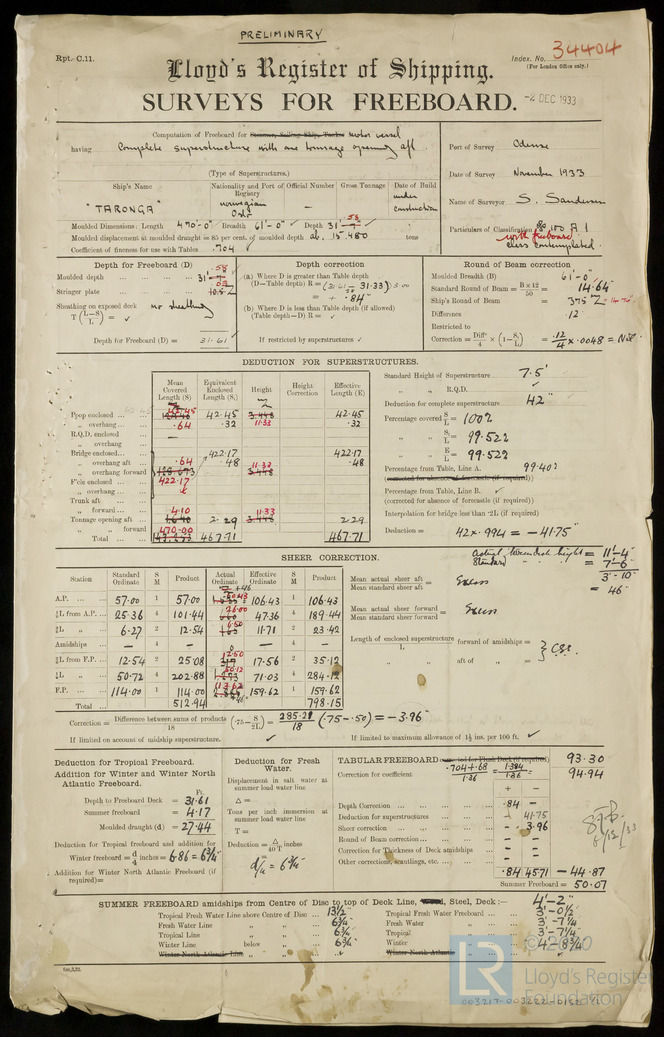 PRELIMINARY
Rpt. C.11.
Index. No. 34404
(For London Office only.)
Lloyd's Register of Shipping.
SURVEYS FOR FREEBOARD.
-2 DEC 1933
Computation of Freeboard for Steamer, Sailing Ship, Tanker motor vessel
having Complete superstructure with one tonnage opening aft
(Type of Superstructures.)
Port of Survey Odense
Date of Survey November 1933
Name of Surveyor S. Sanderson
Particulars of Classification 100 A 1
with freeboard
class contemplated.
Ship's Name
Nationality and Port of Registry
Official Number
Gross Tonnage
Date of Build
"TARONGA"
Norwegian
Oslo
–
under construction
Moulded Dimensions: Length 470'-0" Breadth 61'-0" Depth 31'
Moulded displacement at moulded draught = 85 per cent. of moulded depth 15.480 tons
Coefficient of fineness for use with Tables .704
Depth for Freeboard (D)
Moulded depth ... 31'
Stringer plate ...
Sheathing on exposed deck no sheathing
T (L-S / L) =
Depth for Freeboard (D) = 31.61
Depth correction
(a) Where D is greater than Table depth
(D—Table depth) R = (31.61 - 31.33) 3.00
= + .84
(b) Where D is less than Table depth (if allowed)
(Table depth—D) R =
If restricted by superstructures
Round of Beam correction
Moulded Breadth (B) 61'-0"
Standard Round of Beam = B×12 / 50 = 14.64
Ship's Round of Beam = 375
Difference .12
Restricted to
Correction = Diff° / 4 × (1 - S₁ / L) = .12 / 4 × .0048 = Nil
DEDUCTION FOR SUPERSTRUCTURES.
Mean Covered Length (S)
Equivalent Enclosed Length (S₁)
Height
Height Correction
Effective Length (E)
Poop enclosed ... 42.45 42.45 42.45
„ overhang ... .64 .32 11.33 .32
R.Q.D. enclosed –
„ overhang
Bridge enclosed... 422.17 422.17
„ overhang aft ... .64 .48 .48
„ overhang forward 11.33
F'cle enclosed ... 422.17
„ overhang ...
Trunk aft ...
„ forward ... 4.10 11.33
Tonnage opening aft 2.29 2.29
„ „ forward 470.00
Total ... 467.71 467.71
Standard Height of Superstructure 7.5'
„ „ R.Q.D.
Deduction for complete superstructure 42"
Percentage covered S / L = 100%
„ „ S₁ / L = 99.52%
„ „ E / L = 99.52%
Percentage from Table, Line A. 99.40%
(corrected for absence of forecastle (if required))
Percentage from Table, Line B.
(corrected for absence of forecastle (if required))
Interpolation for bridge less than ·2L (if required)
Deduction = 42 × .994 = -41.75"
SHEER CORRECTION.
actual tweendeck height = 11'-4"
Standard = 7'-6"
3'-10"
= 46"
Station
Standard Ordinate
S M
Product
Actual Ordinate
Effective Ordinate
S M
Product
+46
A.P. ... 57.00 1 57.00 60.43 106.43 1 106.43
⅙L from A.P. ... 25.36 4 101.44 47.36 4 189.44
⅓L „ 6.27 2 12.54 11.71 2 23.42
Amidships – 4 – 0 4
⅓L from F.P. ... 12.54 2 25.08 12.50 17.56 2 35.12
⅙L „ 50.72 4 202.88 50.12 71.03 4 284.12
F.P. ... 114.00 1 114.00 113.62 159.62 1 159.62
Total ... 512.94 798.15
Mean actual sheer aft / Mean standard sheer aft = Excess
Mean actual sheer forward / Mean standard sheer forward = Excess
Length of enclosed superstructure / L forward of amidships =
„ „ aft of „ =
Correction = Difference between sums of products / 18 (·75 - S / 2L) = 285.21 / 18 (.75-.50) = -3.96"
If limited on account of midship superstructure.
If limited to maximum allowance of 1½ ins. per 100 ft.
Deduction for Tropical Freeboard.
Addition for Winter and Winter North Atlantic Freeboard.
Ft.
Depth to Freeboard Deck = 31.61
Summer freeboard = 4.17
Moulded draught (d) = 27.44
Deduction for Tropical freeboard and addition for
Winter freeboard = d / 4 inches = 6.86 = 6¾"
Addition for Winter North Atlantic Freeboard (if required) =
Deduction for Fresh Water.
Displacement in salt water at summer load water line
Δ =
Tons per inch immersion at summer load water line
T =
Deduction = Δ / 40 T inches
d/4 = 6¾"
TABULAR FREEBOARD corrected for Flush Deck (if required) 93.30
Correction for coefficient .704+.68 / 1.36 = 1.384 / 1.36 94.94
+ –
Depth Correction ... .84 –
Deduction for superstructures ... – 41.75
Sheer correction ... – 3.96
Round of Beam correction ... – –
Correction for Thickness of Deck amidships – –
Other corrections, scantlings, etc. ... – –
.84 45.71 -44.87
Summer Freeboard = 50.07
SUMMER FREEBOARD amidships from Centre of Disc to top of Deck Line, Wood, Steel, Deck :— 4'-2"
Tropical Fresh Water Line above Centre of Disc ... 13½
Fresh Water Line „ „ ... 6¾
Tropical Line „ „ ... 6¾
Winter Line below „ ... 6¾
Winter North Atlantic Line „ „
Tropical Fresh Water Freeboard ... 3'-0½"
Fresh Water „ 3'-7¼
Tropical „ 3'-7¼
Winter „ 4'-8¾
Winter North Atlantic „
LR
© 2020
Lloyd's Register
Foundation
003217-003222-0152